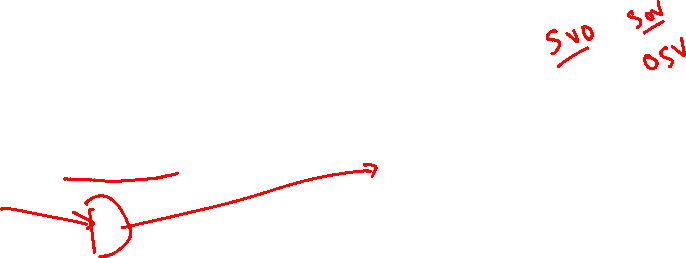 SVO SOV
OSV